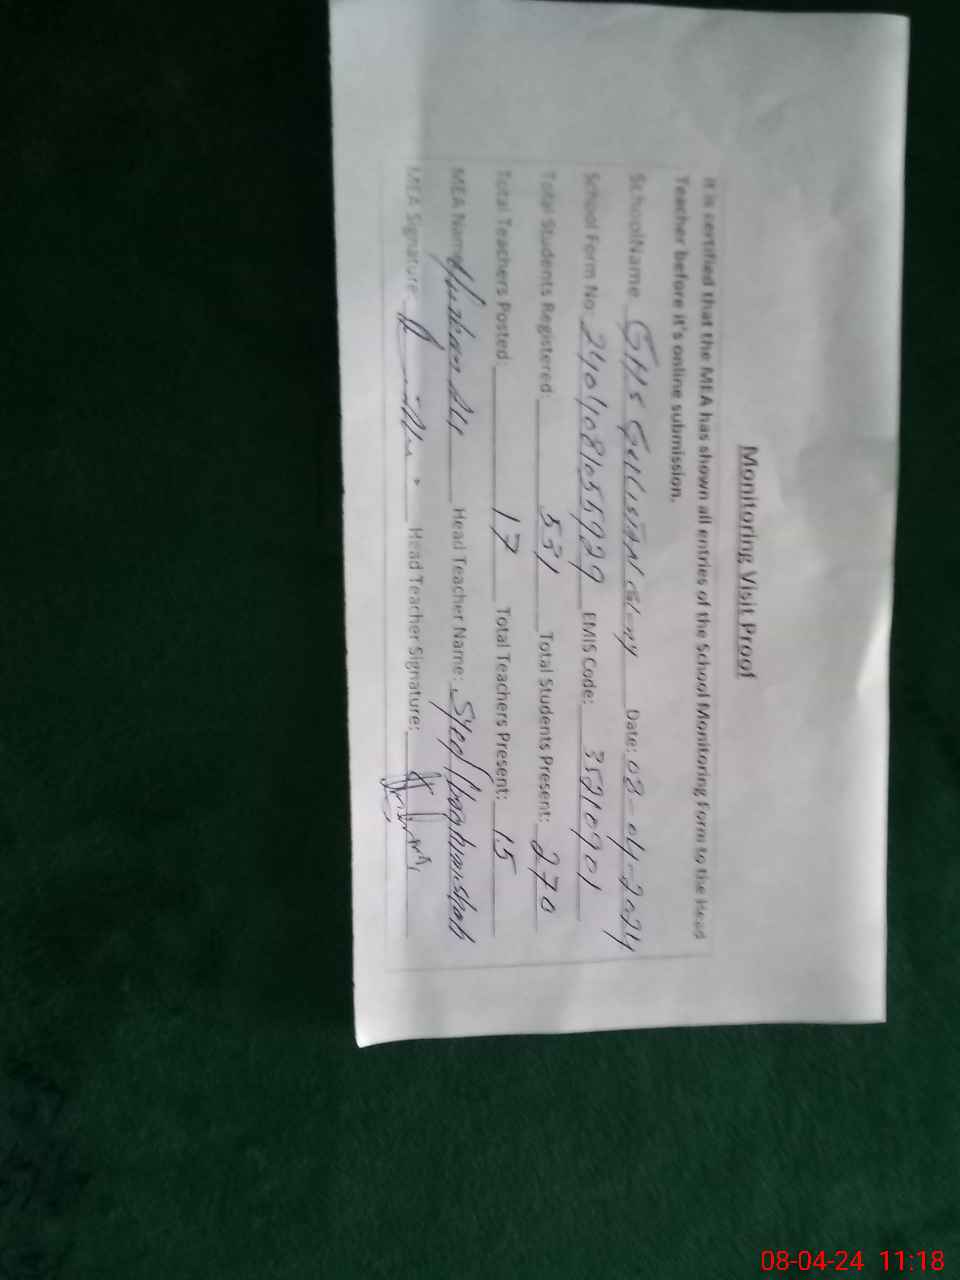 Monitoring Visit Proof
It is certified that the MEA has shown all entries of the School Monitoring Form to the Head
Teacher before it's online submission.
SchoolName GHS Gulistan colony Date: 08-04-2024
School Form No: EMIS Code: 35210901
Total Students Registered: 531 Total Students Present: 270
Total Teachers Posted: 17 Total Teachers Present: 15
MEA Name Ali Head Teacher Name: Syed
MEA Signature: Head Teacher Signature:
08-04-24 11:18